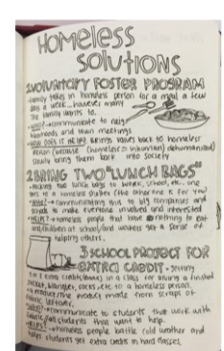 HOMELESS
SOLUTIONS
1 VOLUNTARY FOSTER PROGRAM
-family takes in homeless person for a meal a few
days a week... however many
the family wants to.
-communicate to
and town meetings
HOW DOES IT HELP? Brings values back to homeless
person (because (homeless is voluntary) dehumanized)
slowly bring them back into society
2 BRING TWO "LUNCH BAGS"
-packing two lunch bags to work, school, etc. one
goes to a homeless shelter & the other one is for you
-communicating this to big companies and
schools to make everyone involved and interested
homeless people that have nothing to eat
and children at school/and workers get a sense of
helping others.
3 SCHOOL PROJECT FOR
EXTRA CREDIT
extra credit in a class for giving a finished
jacket, blanket, socks, etc. to a homeless person.
product made from scraps of
fabric leftover.
-communicate to students that work with
students that want to help.
homeless people battle cold weather and
helps students get extra credit in hard classes.